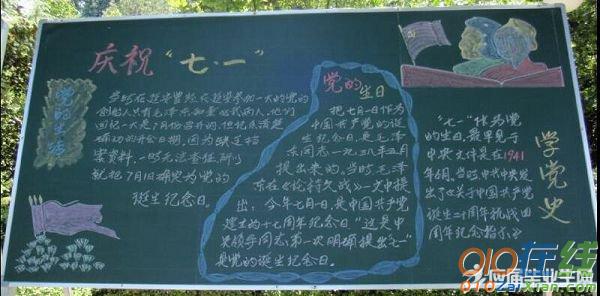 庆祝“七·一”
党的生活
当时在延安曾经参加一大的党的
创始人只有毛泽东和董必武两人，他们
回忆一大是7月份召开的，但记不清楚
确切的开会日期，因为缺乏档
案资料，一时无法查证，所以
就把7月1日确定为党的
诞生纪念日。
党的生日
把七月一日作为
中国共产党的诞
生纪念日，是毛泽
东同志一九三八年五月
提出来的，当时毛泽
东在《论持久战》一文中提
出：今年七月一日，是中国共产党
建立的十七周年纪念日”这是中
央领导同志第一次明确提出七一
是党的诞生纪念日。
“七一”作为党
的生日，最早见于
中央文件是在1941
年6月，当时中共中央发
出了《关于中国共产党
诞生二十周年抗战四
周年纪念指示》
学党史
010在线